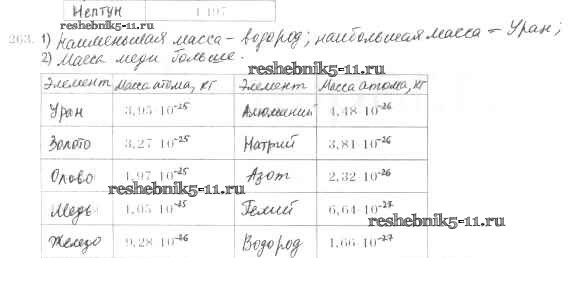 Нептун 1 497
reshebnik5-11.ru
263. 1) Наименьшая масса – водород; наибольшая масса – Уран;
2) Масса меди больше.
reshebnik5-11.ru
Элемент Масса атома, кг Элемент Масса атома, кг
Уран 3,95·10⁻²⁵ Алюминий 4,48·10⁻²⁶
Золото 3,27·10⁻²⁵ Натрий 3,81·10⁻²⁶
Олово 1,97·10⁻²⁵ Азот 2,32·10⁻²⁶
reshebnik5-11.ru
Медь 1,05·10⁻²⁵ Гелий 6,64·10⁻²⁷
reshebnik5-11.ru
Железо 9,28·10⁻²⁶ Водород 1,66·10⁻²⁷